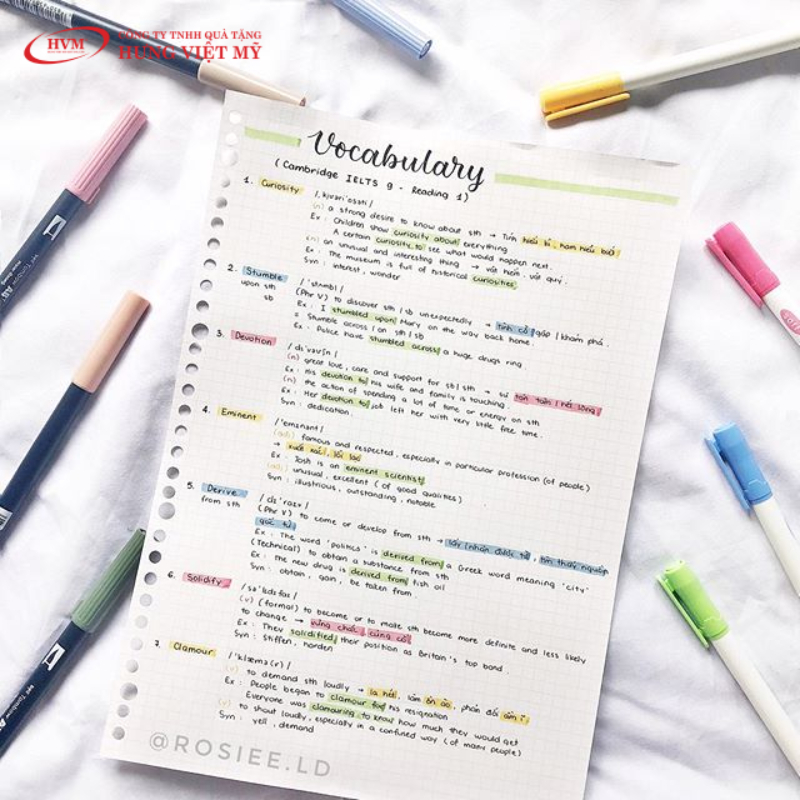 HVM
CÔNG TY TNHH QUÀ TẶNG
HƯNG VIỆT MỸ
Vocabulary
(Cambridge IELTS 9 - Reading 1)
1. Curiosity /ˌkjʊəriˈɒsəti/
(n) a strong desire to know about sth → Tính hiếu kì, ham hiểu biết
Ex: Children show curiosity about everything
A certain curiosity to see what would happen next.
(n) an unusual and interesting thing → vật hiếm, vật quý.
Ex: The museum is full of historical curiosities
Syn: interest, wonder
2. Stumble /ˈstʌmbl/
upon sth (Phr V) to discover sth/sb unexpectedly → tình cờ gặp/khám phá.
sb Ex: I stumbled upon Mary on the way back home.
= Stumble across/on sth/sb
Ex: Police have stumbled across a huge drugs ring.
3. Devotion /dɪˈvəʊʃn/
(n) great love, care and support for sb/sth → sự tận tâm/hết lòng
Ex: His devotion to his wife and family is touching.
(n) the action of spending a lot of time or energy on sth
Ex: Her devotion to job left her with very little free time.
Syn: dedication.
4. Eminent /ˈemɪnənt/
(adj) famous and respected, especially in particular profession (of people)
→ xuất sắc, lỗi lạc
Ex: Josh is an eminent scientist
(adj) unusual, excellent (of good qualities)
Syn: illustrious, outstanding, notable
5. Derive /dɪˈraɪv/
from sth (Phr V) to come or develop from sth → lấy/nhận được từ, tìm thấy nguồn
gốc từ
Ex: The word 'politics' is derived from a Greek word meaning 'city'
(Technical) to obtain a substance from sth
Ex: The new drug is derived from fish oil
Syn: obtain, gain, be taken from.
6. Solidify /səˈlɪdɪfaɪ/
(v) (formal) to become or to make sth become more definite and less likely
to change → vững chắc, củng cố
Ex: They solidified their position as Britain's top band.
Syn: Stiffen, harden
7. Clamour /ˈklæmə(r)/
(v) to demand sth loudly → la hét, làm ồn ào, phản đối ầm ĩ
Ex: People began to clamour for his resignation
Everyone was clamouring to know how much they would get
(v) to shout loudly, especially in a confused way (of many people)
Syn: yell, demand
@ROSIEE.LD